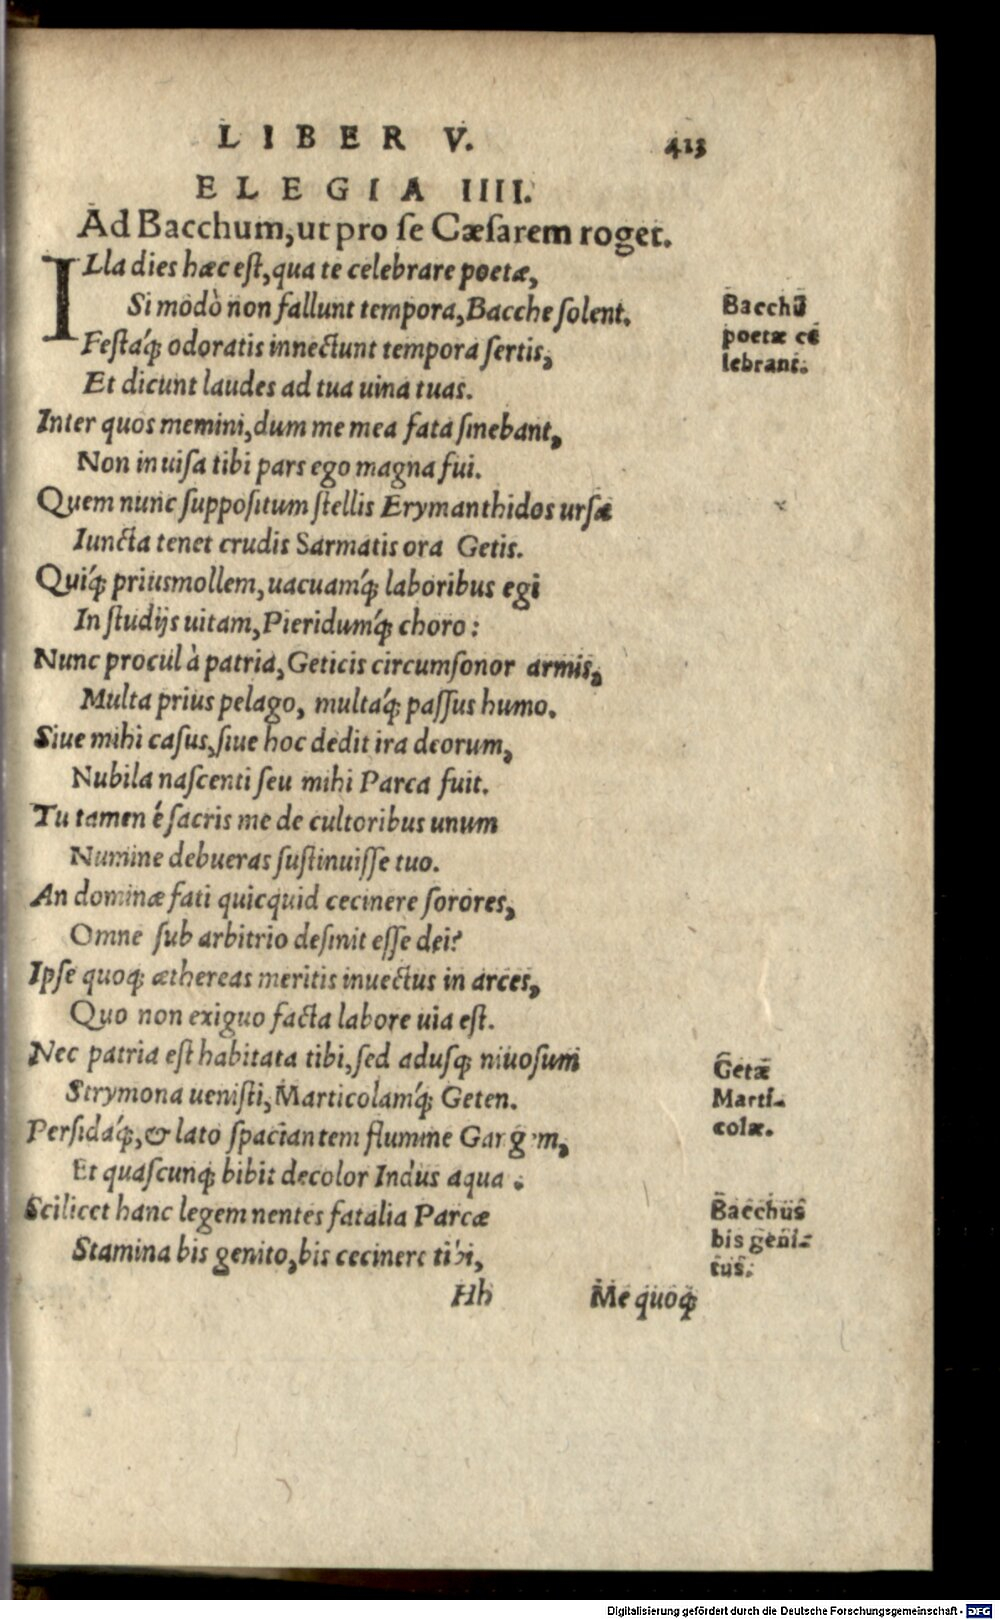 LIBER V. 413
ELEGIA IIII.
Ad Bacchum, ut pro se Cæsarem roget.
ILla dies hæc est, qua te celebrare poetæ,
Si modò non fallunt tempora, Bacche solent.
Festáq́; odoratis innectunt tempora sertis,
Et dicunt laudes ad tua uina tuas.
Inter quos memini, dum me mea fata sinebant,
Non inuisa tibi pars ego magna fui.
Quem nunc suppositum stellis Erymanthidos ursæ
Iuncta tenet crudis Sarmatis ora Getis.
Quiq́; prius mollem, uacuamq́; laboribus egi
In studijs uitam, Pieridumq́; choro:
Nunc procul à patria, Geticis circumsonor armis,
Multa prius pelago, multáq́; passus humo.
Siue mihi casus, siue hoc dedit ira deorum,
Nubila nascenti seu mihi Parca fuit.
Tu tamen é sacris me de cultoribus unum
Numine debueras sustinuisse tuo.
An dominæ fati quicquid cecinere sorores,
Omne sub arbitrio desinit esse dei?
Ipse quoq; æthereas meritis inuectus in arces,
Quo non exiguo facta labore uia est.
Nec patria est habitata tibi, sed adusq; niuosum
Strymona uenisti, Marticolamq́; Geten.
Persidáq́;, & lato spaciantem flumine Gangem,
Et quascunq; bibit decolor Indus aqua.
Scilicet hanc legem nentes fatalia Parcæ
Stamina bis genito, bis cecinere tibi,
Hh Me quoq;
Bacchū
poetæ cē
lebrant.
Getæ
Marti-
colæ.
Bacchus
bis geni-
tus.
Digitalisierung gefördert durch die Deutsche Forschungsgemeinschaft - DFG